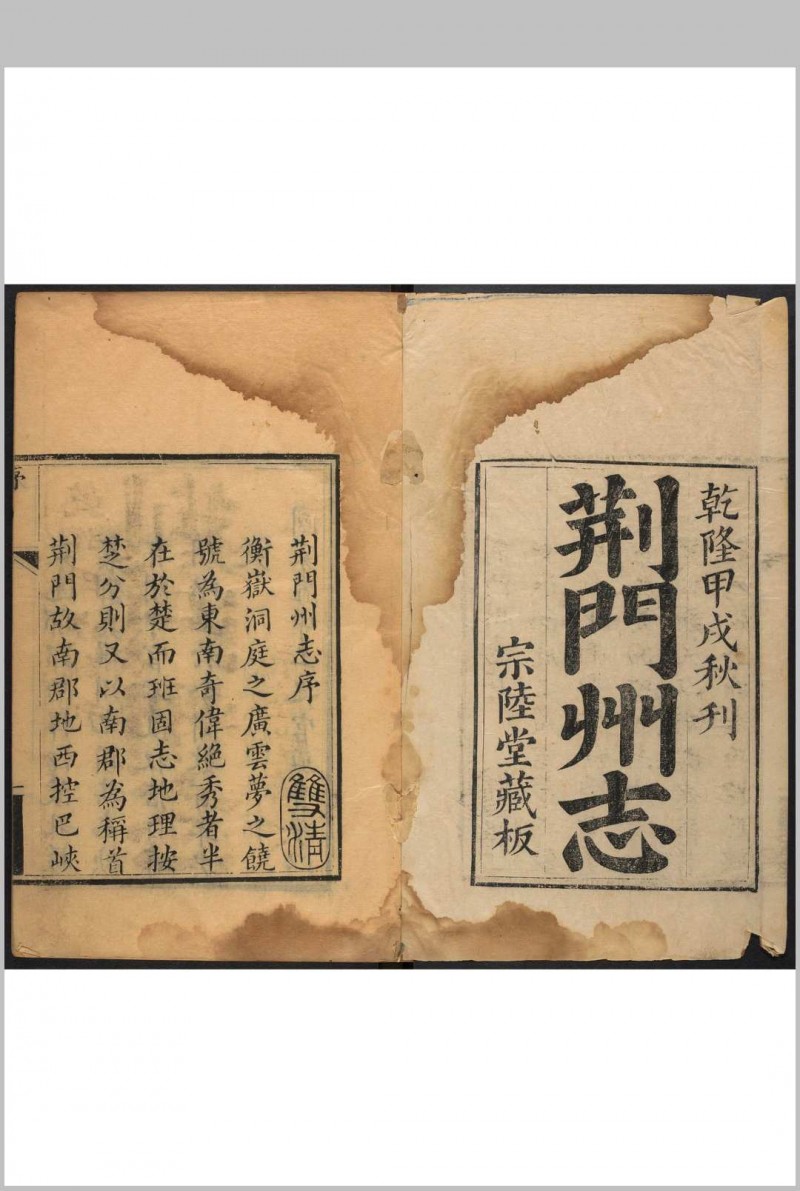 乾隆甲戌秋刊
荆門州志
宗陸堂藏板
荆門州志序
雙清
衡嶽洞庭之廣雲夢之饒
號為東南奇偉絶秀者半
在於楚而班固志地理按
楚分則又以南郡為稱首
荆門故南郡地西控巴峽
序